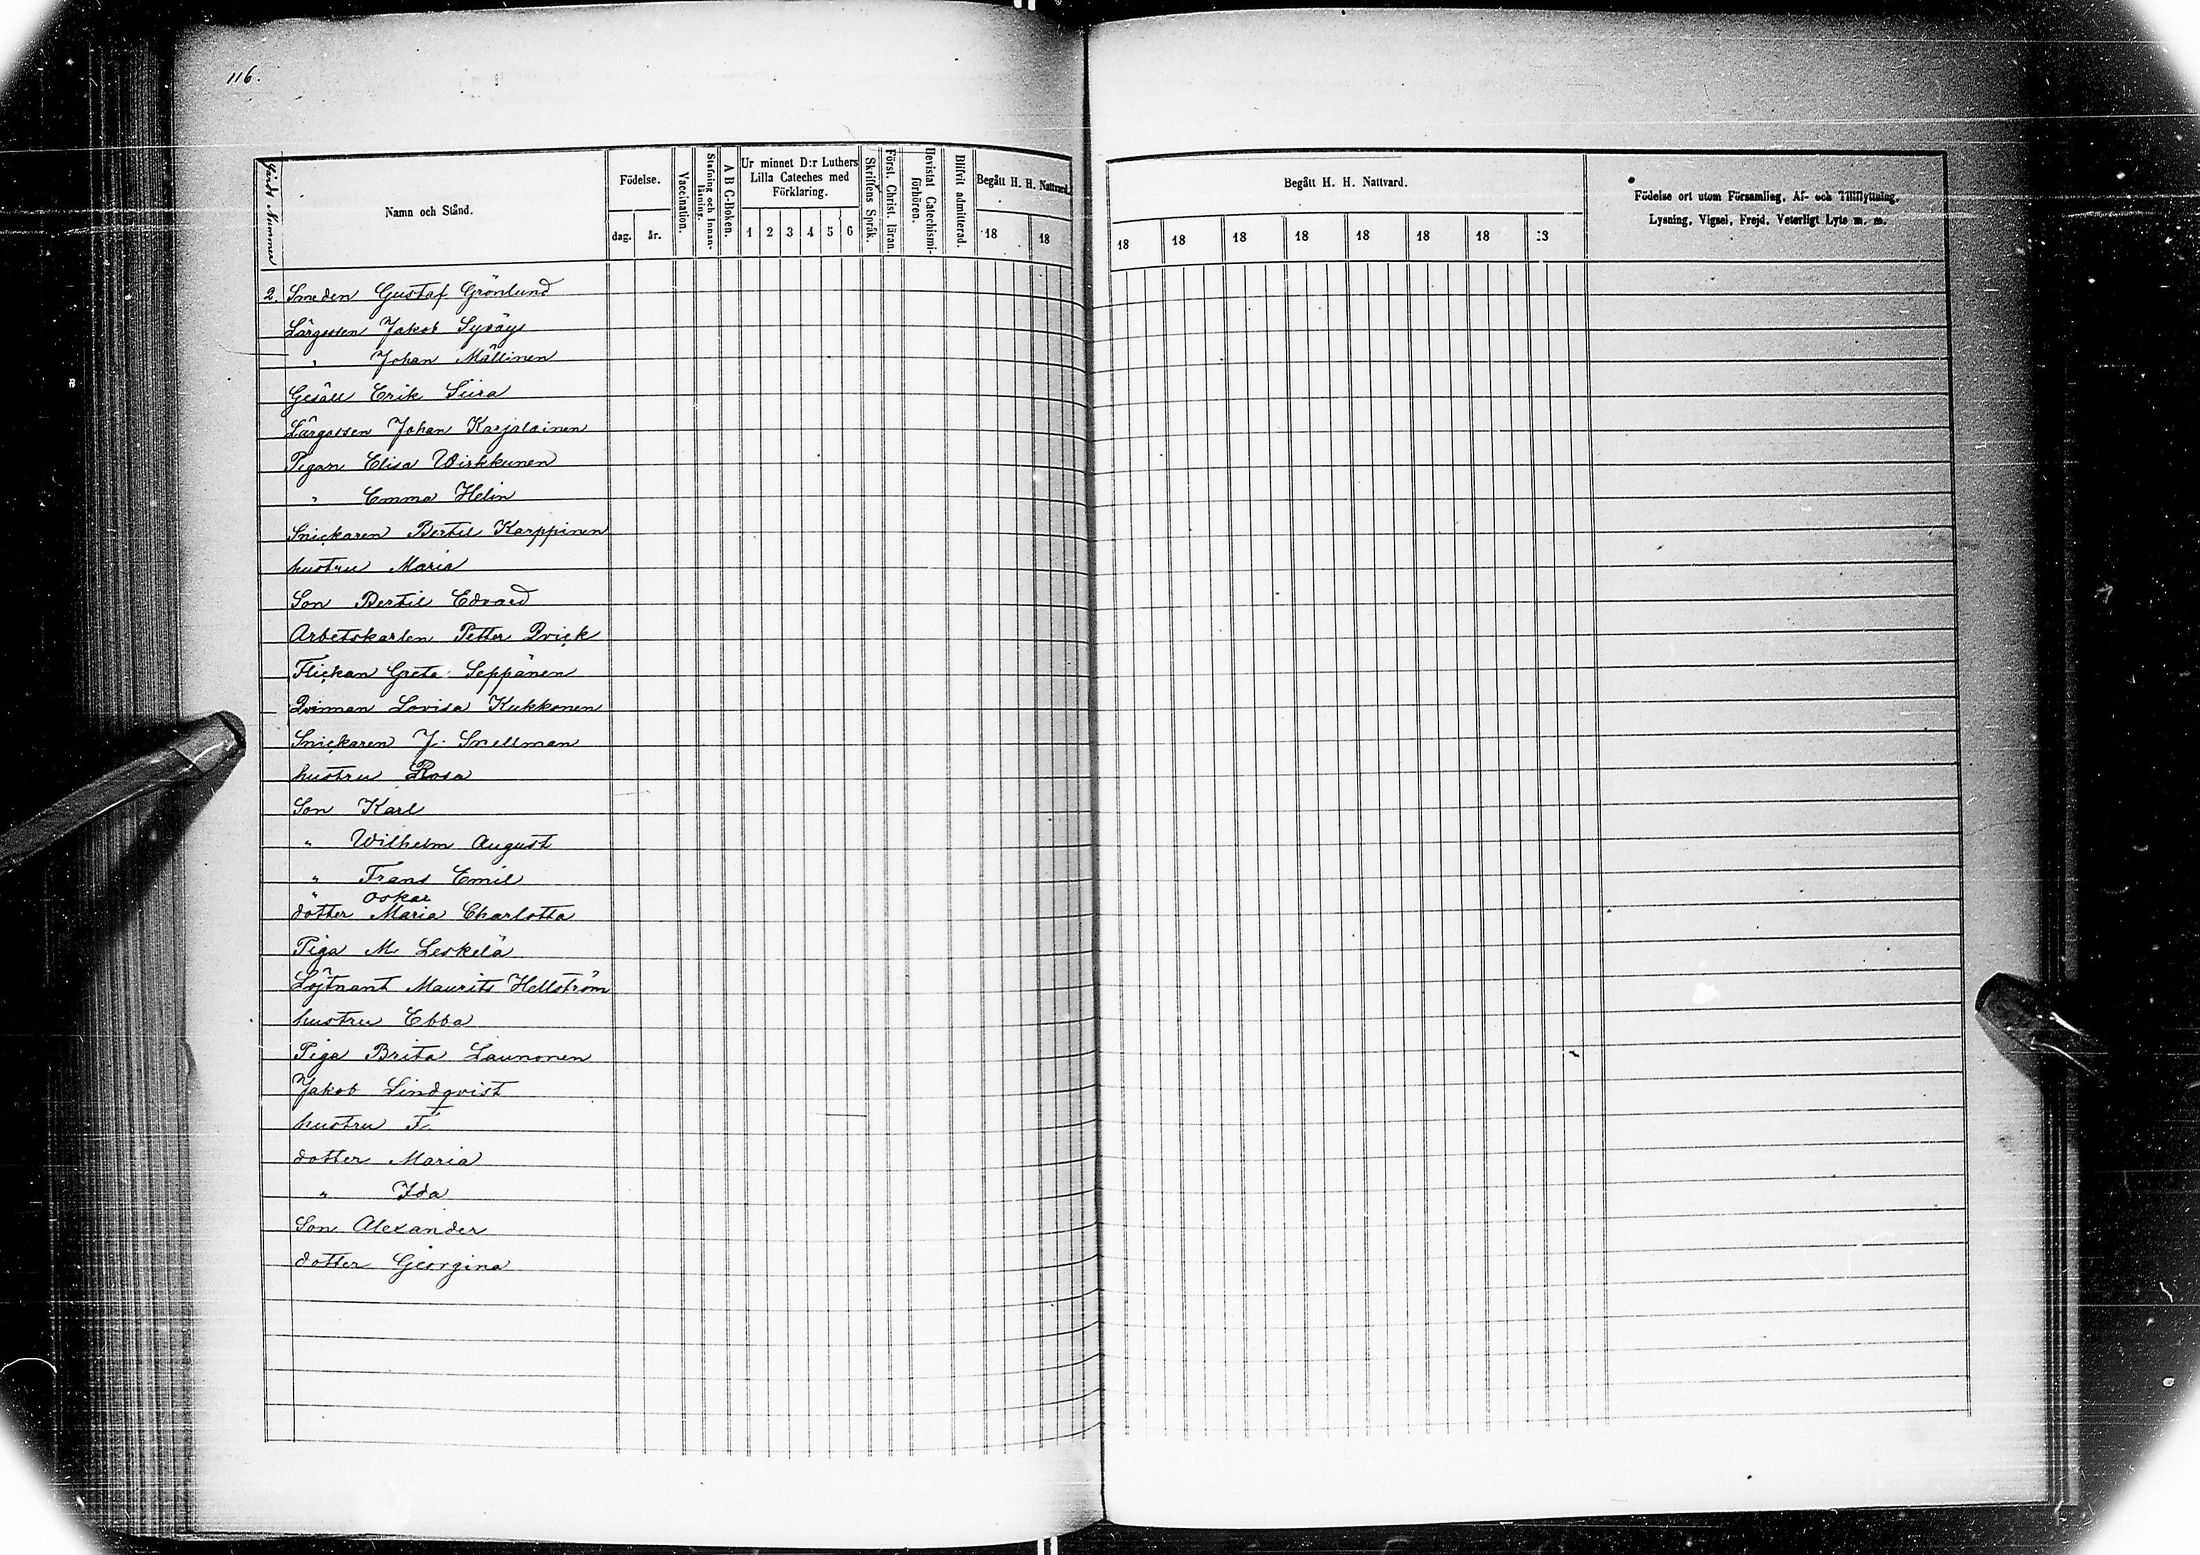 116.
Gårds Nummer
Namn och Stånd.
Födelse.
dag. år.
Vaccination.
Stafning och Innan-läsning.
A B C-Boken.
Ur minnet D:r Luthers
Lilla Cateches med
Förklaring.
1 2 3 4 5 6
Skriftens Språk.
Först. Christ. läran.
Bevistat Catechismi-förhören.
Blifvit admitterad.
Begått H. H. Nattvard.
18 18
Begått H. H. Nattvard.
18 18 18 18 18 18 18 18
Födelse ort utom Församling, Af- och Tillflyttning,
Lysning, Vigsel, Frejd, Veterligt Lyte m. m.
2. Smeden Gustaf Grönlund
Lärgossen Jakob Syväys
" Johan Mällinen
Gesäll Erik Siira
Lärgossen Johan Karjalainen
Pigan Elisa Wirkkunen
" Emma Helin
Snickaren Bertil Karppinen
hustru Maria
Son Bertil Edvard
Arbetskarlen Petter Qvick
Flickan Greta Seppänen
Qvinnan Lovisa Kukkonen
Snickaren J. Snellman
hustru Rosa
Son Karl
" Wilhelm August
" Frans Emil
" Oskar
dotter Maria Charlotta
Piga M. Leskelä
Löjtnant Maurits Hellström
hustru Ebba
Piga Brita Launonen
Jakob Lindqvist
hustru F.
dotter Maria
" Ida
Son Alexander
dotter Georgina